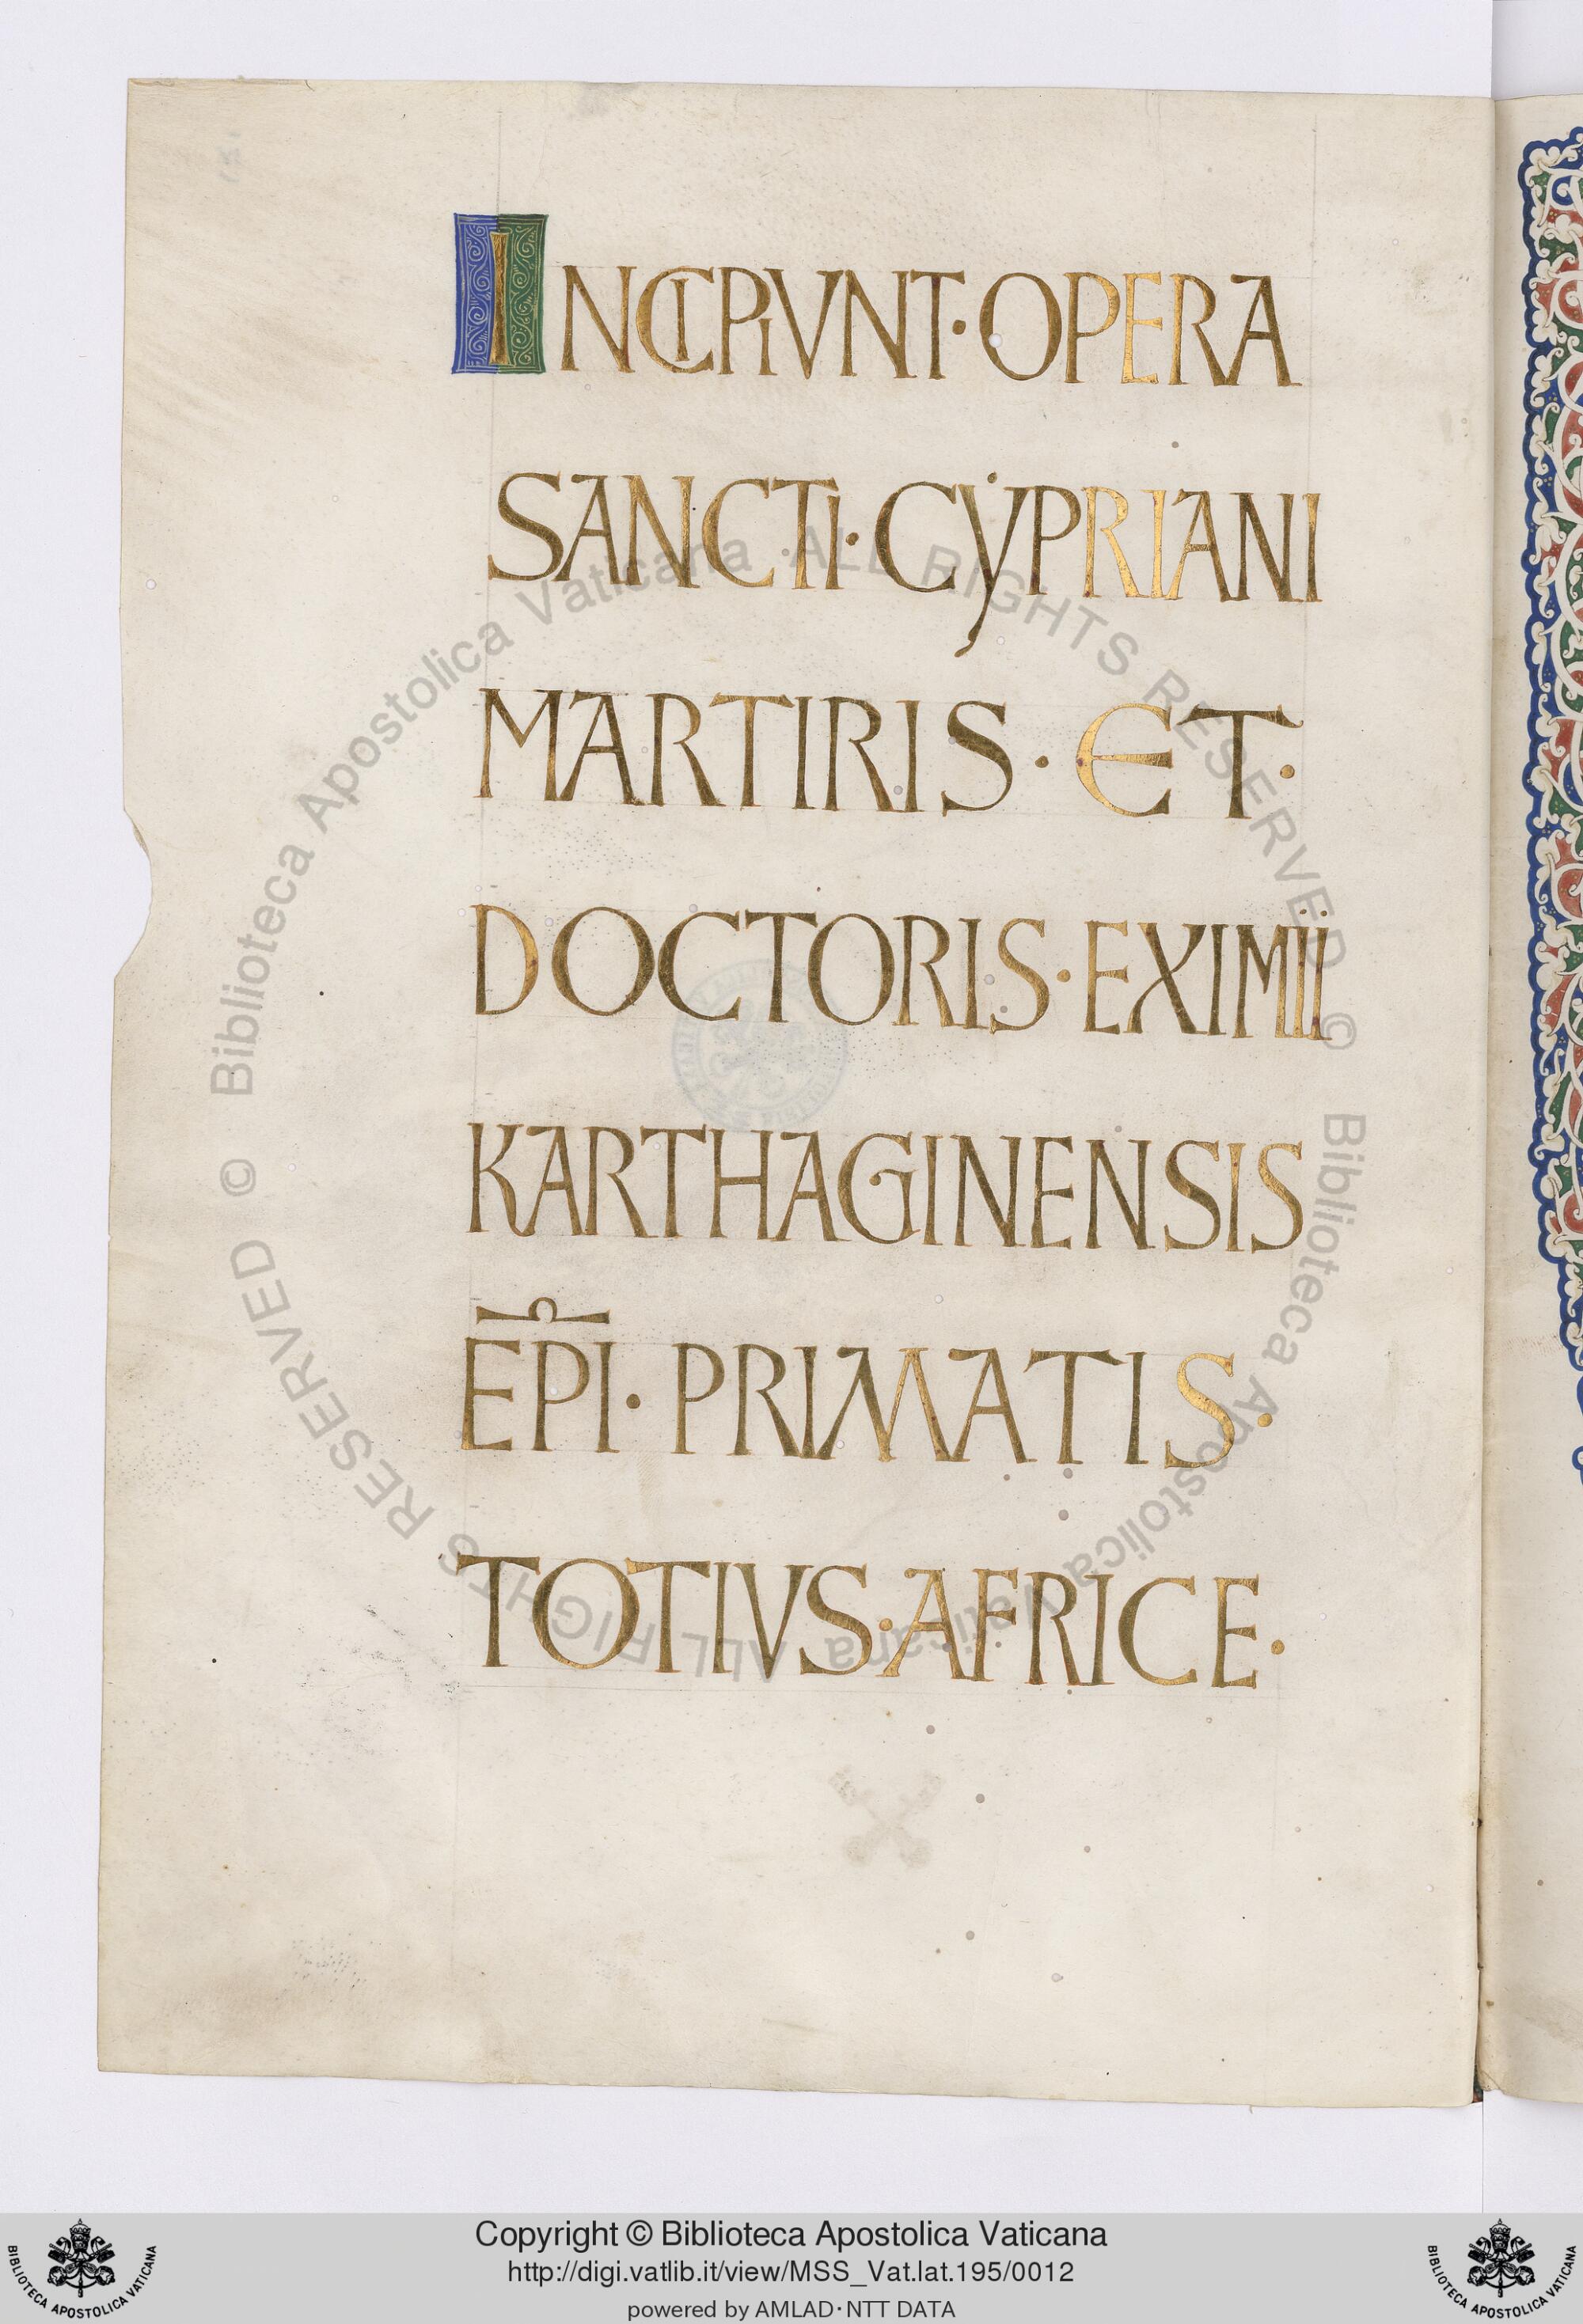 INCIPIVNT · OPERA
SANCTI · CẏPRIANI
MARTIRIS · ET ·
DOCTORIS · EXIMII
KARTHAGINENSIS
EP̅I · PRIMATIS ·
TOTIVS · AFRICE ·
© Biblioteca Apostolica Vaticana · ALL RIGHTS RESERVED
© Biblioteca Apostolica Vaticana ALL RIGHTS RESERVED
Copyright © Biblioteca Apostolica Vaticana
http://digi.vatlib.it/view/MSS_Vat.lat.195/0012
powered by AMLAD · NTT DATA
BIBLIOTECA APOSTOLICA VATICANA
BIBLIOTECA APOSTOLICA VATICANA